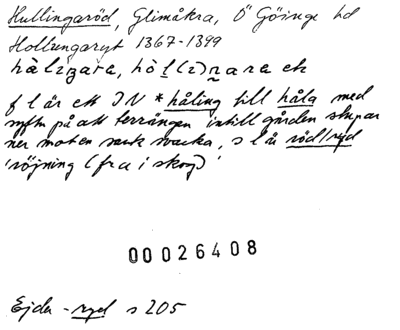 Hullingaröd, Glimåkra, Ö Göinge hd
Hollungaryt 1367-1399
hàlizara, hòl(i)nara etc
f l är ett IN *håling till håla med
syftn på att terrängen intill gården stupar
ner mot en sank svacka, s l är röd/ryd
'röjning (fra i skog)'
00026408
Ejder -ryd s 205